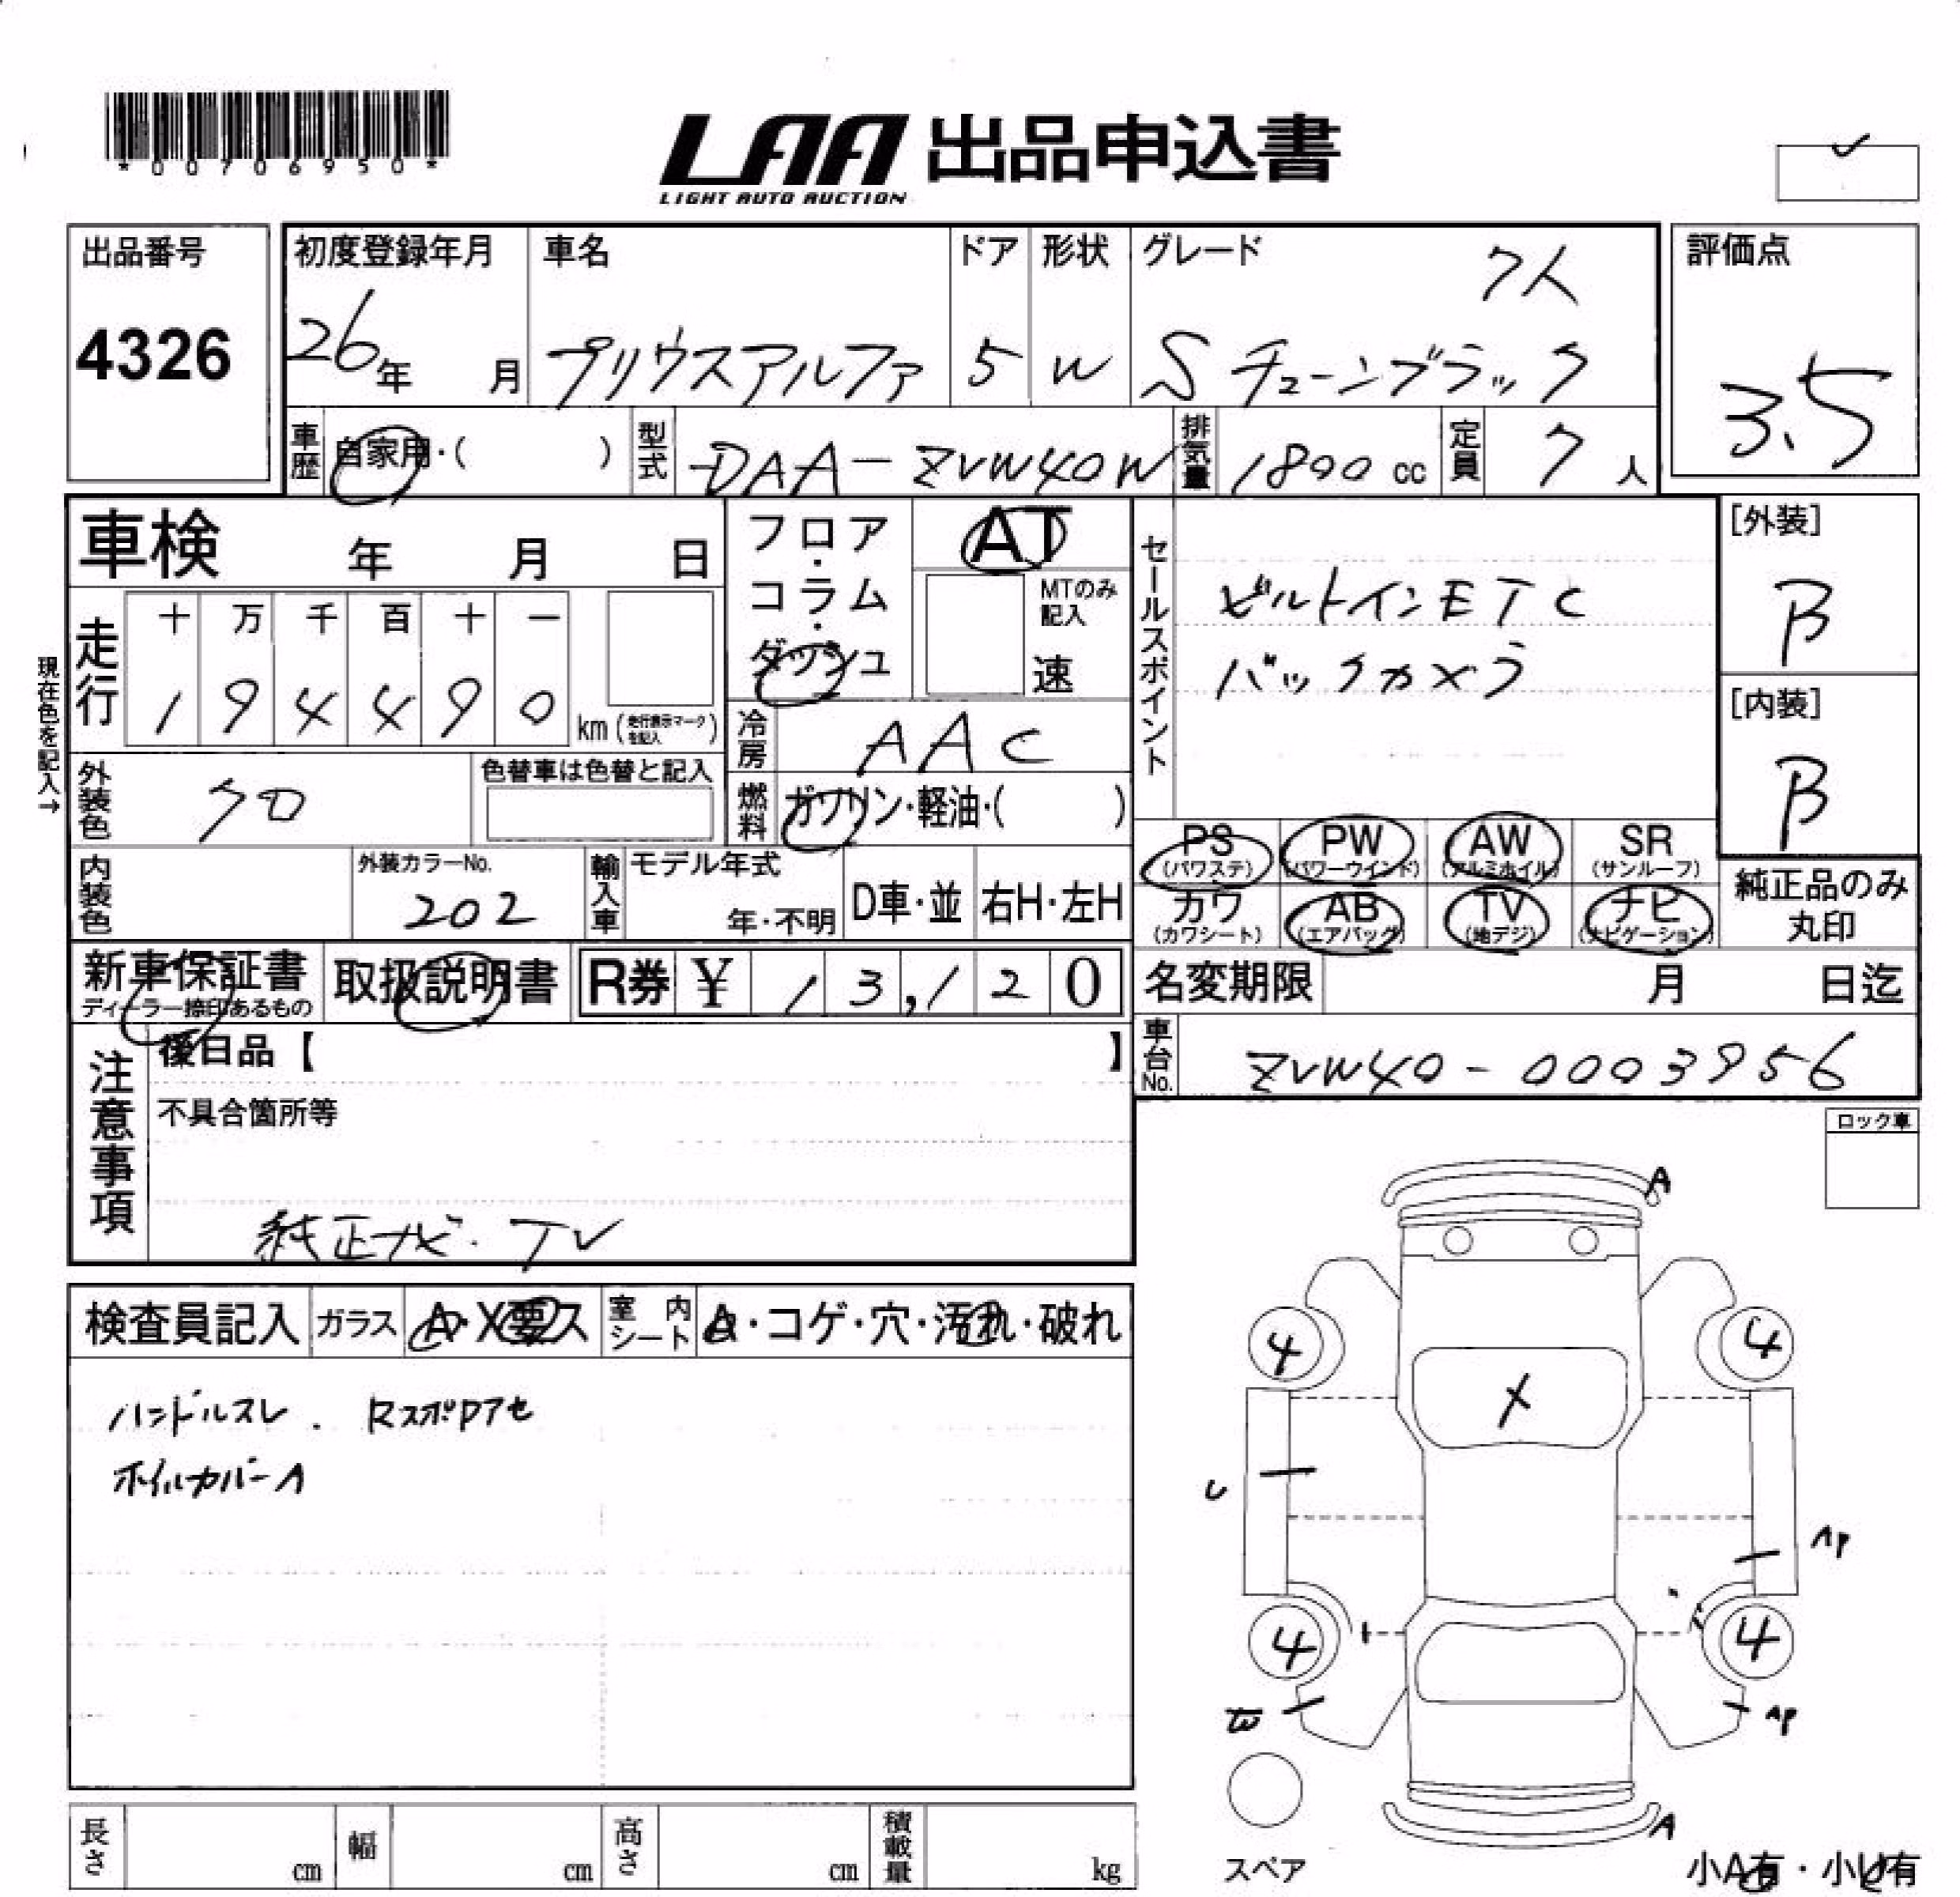 *00706950*
LAA 出品申込書
LIGHT AUTO AUCTION
出品番号
4326
初度登録年月
26年 月
車名
プリウスアルファ
ドア
5
形状
W
グレード
7人
Sチューンブラック
評価点
3.5
車歴
自家用・( )
型式
DAA-ZVW40W
排気量
1800 cc
定員
7人
車検 年 月 日
フロア・コラム・ダッシュ
AT
MTのみ記入
速
現在色を記入→
走行
十 万 千 百 十 一
1 9 4 4 9 0
km (走行表示マークを記入)
冷房
AAC
外装色
クロ
色替車は色替と記入
燃料
ガソリン・軽油・( )
内装色
外装カラーNo.
202
輸入車
モデル年式
年・不明
D車・並
右H・左H
セールスポイント
ビルトインETC
バックカメラ
[外装]
B
[内装]
B
PS (パワステ)
PW (パワーウインド)
AW (アルミホイル)
SR (サンルーフ)
カワ (カワシート)
AB (エアバッグ)
TV (地デジ)
ナビ (ナビゲーション)
純正品のみ丸印
新車保証書
ディーラー捺印あるもの
取扱説明書
R券 ¥ 13,120
名変期限 月 日迄
車台No.
ZVW40-0003956
注意事項
後日品【 】
不具合箇所等
純正ナビ・TV
ロック車
検査員記入
ガラス
A・X要ス
室内シート
A・コゲ・穴・汚れ・破れ
ハンドルスレ.
ホイルカバーA
A
4
4
X
U
AP
4
4
W
AP
A
スペア
小A有・小U有
長さ cm
幅 cm
高さ cm
積載量 kg